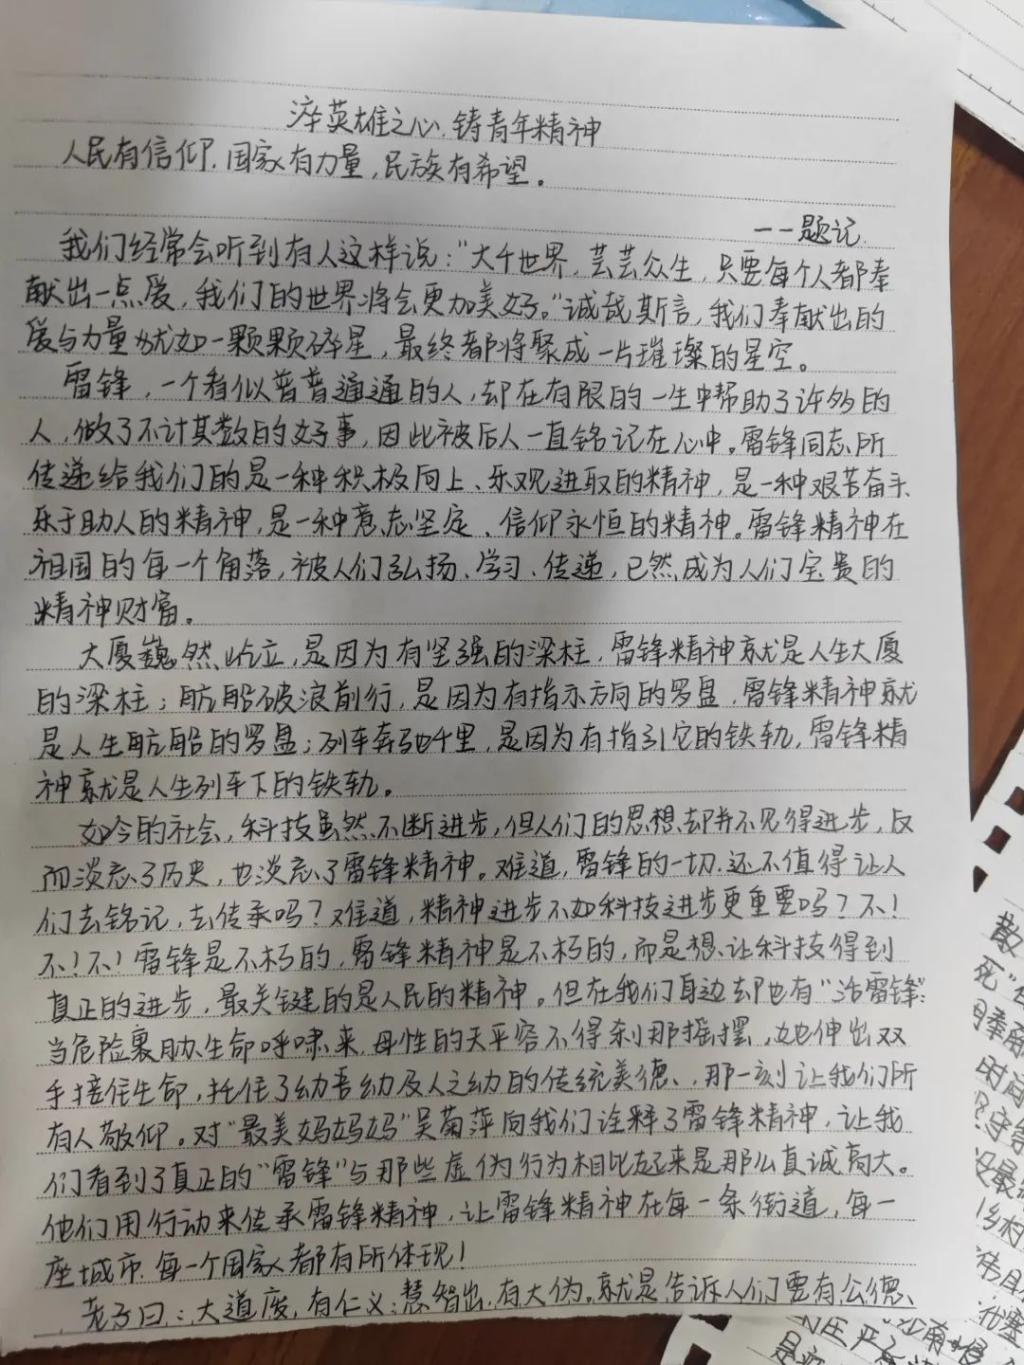 淬英雄之心,铸青年精神
人民有信仰,国家有力量,民族有希望。
——题记
我们经常会听到有人这样说:"大千世界,芸芸众生,只要每个人都奉
献出一点爱,我们的世界将会更加美好。"诚哉斯言,我们奉献出的
爱与力量犹如一颗颗碎星,最终都将聚成一片璀璨的星空。
雷锋,一个看似普普通通的人,却在有限的一生中帮助了许多的
人,做了不计其数的好事,因此被后人一直铭记在心中。雷锋同志所
传递给我们的是一种积极向上、乐观进取的精神,是一种艰苦奋斗、
乐于助人的精神,是一种意志坚定、信仰永恒的精神。雷锋精神在
祖国的每一个角落,被人们弘扬、学习、传递,已然成为人们宝贵的
精神财富。
大厦巍然屹立,是因为有坚强的梁柱,雷锋精神就是人生大厦
的梁柱;航船破浪前行,是因为有指示方向的罗盘,雷锋精神就
是人生航船的罗盘;列车奔驰千里,是因为有指引它的铁轨,雷锋精
神就是人生列车下的铁轨。
如今的社会,科技虽然不断进步,但人们的思想却并不见得进步,反
而淡忘了历史,也淡忘了雷锋精神。难道,雷锋的一切还不值得让人
们去铭记,去传承吗?难道,精神进步不如科技进步更重要吗?不!
不!不!雷锋是不朽的,雷锋精神是不朽的,而是想让科技得到
真正的进步,最关键的是人民的精神。但在我们身边却也有"活雷锋":
当危险裹胁生命呼啸来,母性的天平容不得刹那摇摆,她伸出双
手接住生命,托住了幼吾幼及人之幼的传统美德、,那一刻让我们所
有人敬仰。对"最美妈妈妈"吴菊萍向我们诠释了雷锋精神,让我
们看到了真正的"雷锋"与那些虚伪行为相比起来是那么真诚高大。
他们用行动来传承雷锋精神,让雷锋精神在每一条街道,每一
座城市,每一个国家都有所体现!
老子曰:大道废,有仁义;慧智出,有大伪。就是告诉人们要有公德、
散
死"
时间
乡村
伟